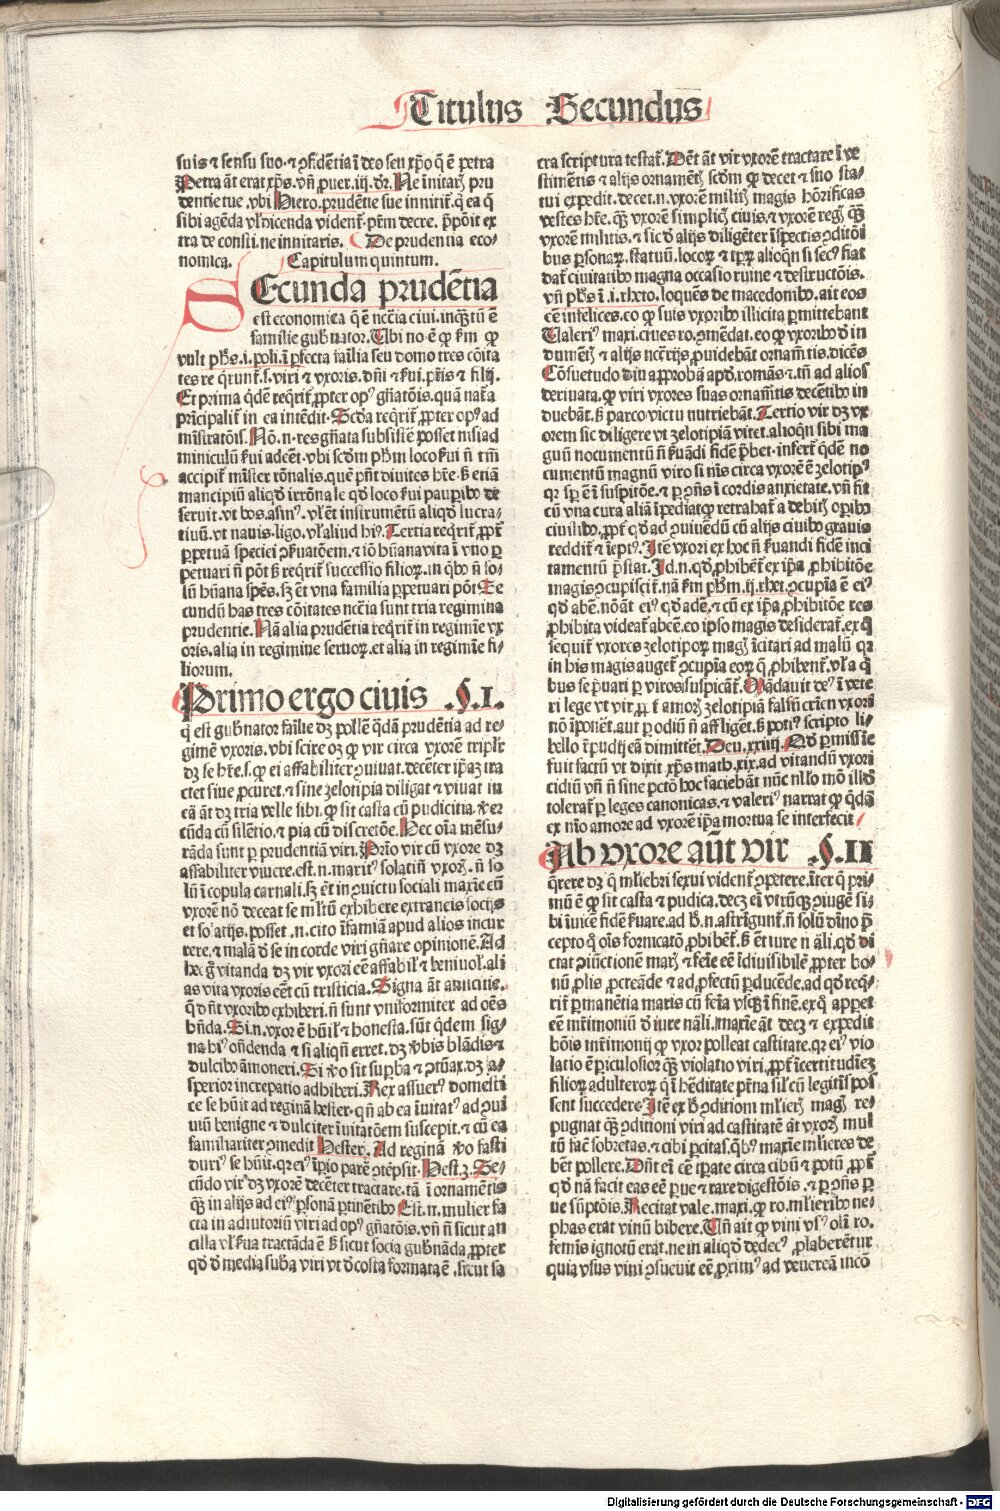 Titulus Secundus
suis & sensu suo. & ꝯfidẽtia ĩ deo seu xp̃o q̃ ẽ petra
Petra aũt erat xp̃s. vñ ꝓuer. iij. dr̃. Ne ĩnitarꝭ pru
dentie tue. vbi Hiero. prudẽtie sue innitit̃. q̃ ea q̃
sibi agẽda vl̃ dicenda vident̃. pr̃m decre. p̃põit ex
tra de consti. ne innitaris. De prudentia eco-
nomica. Capitulum quintum.
SEcunda prudẽtia
est economica q̃ ẽ nc̃cia ciui. inqȝtũ ẽ
familie gub̃nator. Ubi no. ẽ ꝙ k̃m ꝙ
vult ph̃s. i. poli. ĩ ꝑfecta fail̃ia seu domo tres cõita
tes reqrunt̃. s. viri & vxoris. dñi & s̃ui. pr̃is & filij.
Et prima qdẽ reqrit̃ ꝓpter opꝰ gñatõis. quã nat̃a
pr̃icipalit̃ in ea intẽdit. Scd̃a reqrit̃ ꝓpter opꝰ ad
mĩstratõis. Nõ. n. res gñata subsistẽ posset nisi ad
miniculũ s̃ui adeẽt. vbi scd̃m ph̃m loco s̃ui ñ tm̃
accipit̃ mĩster rõnalis. quẽ pñt diuites hr̃e. s̃ etiã
mancipiũ aliqd̃ irrõnale qd̃ loco s̃ui pauꝑibꝰ de
seruit. vt bos. asinꝰ. vl̃ ẽt instrumẽtũ aliqd̃ lucra-
tiuũ. vt nauis. ligo. vl̃ aliud hiꝰ. Tertia reqrit̃ ꝓpt̃
ꝑpetuã speciei ꝯs̃uatõem. & iõ hũana vita ĩ vno ꝑ
petuari ñ põt s̃ reqrit̃ successio filioꝝ. in qbꝰ ñ so-
lũ hũana spẽs. sȝ ẽt vna familia ꝑpetuari põt. Se
cundũ has tres cõitates nc̃cia sunt tria regimina
prudentie. Nã alia prudẽtia reqrit̃ in regimĩe vx
oris. alia in regimine seruoꝝ. et alia in regimĩe fi-
liorum.
Primo ergo ciuis .§.I.
q̃ est gub̃nator fail̃ie dȝ pollẽ qdã prudẽtia ad re-
gimẽ vxoris. vbi scire oȝ ꝙ vir circa vxorẽ tripl̃r
dȝ se hr̃e. s. ꝙ ei affabiliter ꝯuiuat. decẽter ip̃aȝ tra
ctet siue ꝓcuret. & sine zelotipia diligat & viuat in
eã ãt dȝ tria velle sibi. ꝙ sit casta cũ pudicitia. ṽer
cũda cũ silẽtio. & pia cũ discretõe. Hec oĩa mẽsu-
rãda sunt ꝑ prudẽtiã viri. Prĩo vir cũ vxore dȝ
affabiliter viuere. est. n. maritꝰ solatiũ vxorꝭ. ñ so
lũ ĩ copula carnali. sȝ ẽt in ꝯuictu sociali maxĩe cũ
vxorẽ nõ deceat se ml̃tũ exhibere extraneis socijs
et solatijs. posset. n. cito ĩfamiã apud alios incur
rere. & malã d̃ se in corde viri gñare opinionẽ. Ad
hec g̃ vitanda dȝ vir vxori eẽ affabil̃ & beniuol̃. ali
as vita vxoris eẽt cũ tristicia. Signa ãt amicitie.
q̃ dñt vxoribꝰ exhiberi. ñ sunt vniformiter ad oẽs
hñda. Si. n. vxor ẽ hũil̃ & honesta. sũt qdem sig-
na hiꝰ oñdenda & si aliqñ erret. dȝ ṽbis blãdis &
dulcibꝰ ãmoneri. Si ṽo sit suꝑba & ꝓteruax. dȝ a-
sperior increpatio adhiberi. Rex assuerꝰ domesti
ce se hũit ad reginã hester. qñ ab ea ĩuitatꝰ ad ꝯui
uiũ benigne & dulciter ĩuitatõem suscepit. & cũ ea
familiariter ꝯmedit Hester. Ad reginã ṽo fasti
duriꝰ se hũit. qr eiꝰ ĩꝑio parẽ ꝯtẽpsit. Hest. 3. Se-
cũdo vir dȝ vxorẽ decẽter tractare. tã ĩ ornamẽtis
qȝ in alijs ad eiꝰ ꝑsonã ꝑtinẽtibꝰ. Est. n. mulier fa
cta in adiutoriũ viri ad opꝰ gñatõis. vñ ñ sicut an
cilla vl̃ s̃ua tractãda ẽ s̃ sicut socia gub̃nãda. ꝓpter
qd̃ d̃ media suba viri vt d̃ costa formata ẽ. sicut sa
cra scriptura testat̃. Dẽt ãt vir vxorẽ tractare ĩ ve
stimẽtis & alijs ornamẽtꝭ scd̃m ꝙ decet & suo sta-
tui expedit. decet. n. vxorẽ militꝭ magis hõrificas
vestes hr̃e. qȝ vxorẽ simplicꝭ ciuis. & vxorẽ regꝭ qȝ
vxorẽ militis. & sic d̃ alijs diligẽter ĩspectis ꝯditõi
bus ꝑsonaꝝ. statuũ. locoꝝ & tꝑꝝ alioqn si secꝰ fiat
dat̃ ciuitatibꝰ magna occasio ruine & destructõis.
vñ ph̃s ĩ. i. rheto. loquẽs de macedonibꝰ. ait eos
eẽ infelices. eo ꝙ suis vxoribꝰ illicita ꝑmittebant
Ualeriꝰ maxi. ciues ro. ꝯmẽdat. eo ꝙ vxoribꝰ d̃ in
dumẽtꝭ & alijs nc̃rijs ꝓuidebãt ornam̃tis. dicẽs
Cõsuetudo diu aꝓrobãa apd̃. romãs & tñ ad alios
deriuata. ꝙ viri vxores suas ornam̃tis decẽtibꝰ in
duebãt. s̃ parco victu nutriebãt. Tertio vir dȝ vx
orem sic diligere vt zelotipiã vitet. alioqn sibi ma
gnũ nocumẽtũ ñ s̃uãdi fidẽ p̃bet. infert̃ qdẽ no
cumentũ magnũ viro si nĩs circa vxorẽ ẽ zelotipꝰ
qr sꝑ ẽ ĩ suspitõe. & ꝑ ꝯñs ĩ cordis anxietate. vñ fit
cũ vna cura aliã ĩpediat ꝙ retrahat̃ a debitꝭ oꝑibꝰ
ciuilibꝰ. ꝓpt̃ qd̃ ad ꝯuiuẽdũ cũ alijs ciuibꝰ grauis
reddit̃ & ĩeptꝰ. Itẽ vxori ex hoc ñ s̃uandi fidẽ inci
tamentũ p̃stat. Id. n. qd̃ ꝓhibet̃ ex ip̃a ꝓhibitõe
magis ꝯcupiscit̃. nã k̃m ph̃m. ij. rhet. ꝯcupĩa ẽ eiꝰ
qd̃ abẽ. nõ ãt eiꝰ qd̃ adẽ. & cũ ex ip̃a ꝓhibitõe res
ꝓhibita videat̃ abeẽ. eo ipso magis desiderat̃. ex q̃
sequit̃ vxores zelotipoꝝ magꝭ ĩcitari ad malũ qr
in his magis auget̃ ꝯcupĩa eoꝝ q̃ ꝓhibent̃. vl̃ a q̃
bus se p̃uari ꝑ viros suspicant̃. Mãdauit deꝰ ĩ vete
ri lege vt vir ꝓpt̃ amorꝭ zelotipiã falsũ crĩen vxori
nõ ĩponẽt. aut ꝑ odiũ ñ affligẽt. s̃ potiꝰ scripto li-
bello ĩpudij eã dimittẽt. Deu. xxiiij. Qd̃ ꝑmissiẽ
fuit factũ vt dixit xp̃s math. xix. ad vitandũ vxori
cidiũ vñ ñ sine pctõ hoc faciebãt nũc nl̃lo mõ illd̃
tolerat̃ ꝑ leges canonicas. & valeriꝰ narrat ꝙ qdã
ex nĩo amore ad vxorẽ ip̃a mortua se interfecit
Ab vxore aũt vir .§.II
q̃rere dȝ q̃ ml̃iebri sexui vident̃ ꝯpetere. ĩter q̃ pri-
mũ ẽ ꝙ sit casta & pudica. decȝ ei vtrũqȝ ꝯiugẽ si-
bi ĩuicẽ fidẽ s̃uare. ad h̃. n. astrĩgunt̃. ñ solũ diuino p̃
cepto q̃ oĩs fornicatõ ꝓhibet̃. s̃ ẽt iure nãli. qd̃ di
ctat ꝯiũctionẽ marꝭ & fẽie eẽ ĩdiuisibilẽ ꝓpter bo-
nũ ꝓlis ꝓcreãde & ad ꝓfectũ ꝑducẽde. ad qd̃ req̃-
rit̃ ꝑmanẽtia maris cũ feĩa vsqȝ ĩ finẽ. ex q̃ appet
eẽ mr̃imoniũ d̃ iure nãli. maxĩe ãt decȝ & expedit
bõis mr̃imonij ꝙ vxor polleat castitate. qr eiꝰ vio
latio ẽ ꝑiculosior qȝ violatio viri. ꝓpt̃ ĩcertitudinẽ
filioꝝ adulteroꝝ q̃ ĩ hẽditate pr̃na sil̃ cũ legitĩs pos
sent succedere. Itẽ ex h̃ ꝯditioni ml̃ierꝭ magꝭ re-
pugnat qȝ ꝯditioni viri ad castitatẽ ãt vxorꝭ mul
tũ fac̃ sobrietas. & cibi ꝑcitas. qbꝰ maxĩe ml̃ieres de
bẽt pollere. Dñt ei eẽ tꝑate circa cibũ & potũ ꝓpt̃
qd̃ nã facit eas eẽ ꝑue & rare digestõis. & ꝑ ꝯñs ꝑ
ue sũptõis. Recitat vale. maxi. ꝙ ro. ml̃ieribꝰ ne-
phas erat vinũ bibere. Uñ ait ꝙ vini vsꝰ olĩ ro.
femis ignotũ erat. ne in aliqd̃ dedecꝰ ꝓlaberẽtur
quia vsus vini ꝯsueuit eẽ ꝓximꝰ ad venereã incõ
Digitalisierung gefördert durch die Deutsche Forschungsgemeinschaft - DFG